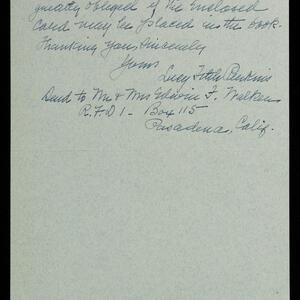 greatly obliged if the enclosed
card may be placed in the book.
Thanking you sincerely
Yours
Lucy Fitch Perkins
Send to Mr & Mrs Edwin F. Walker
R.F.D 1 - Box 115
Pasadena, Calif.